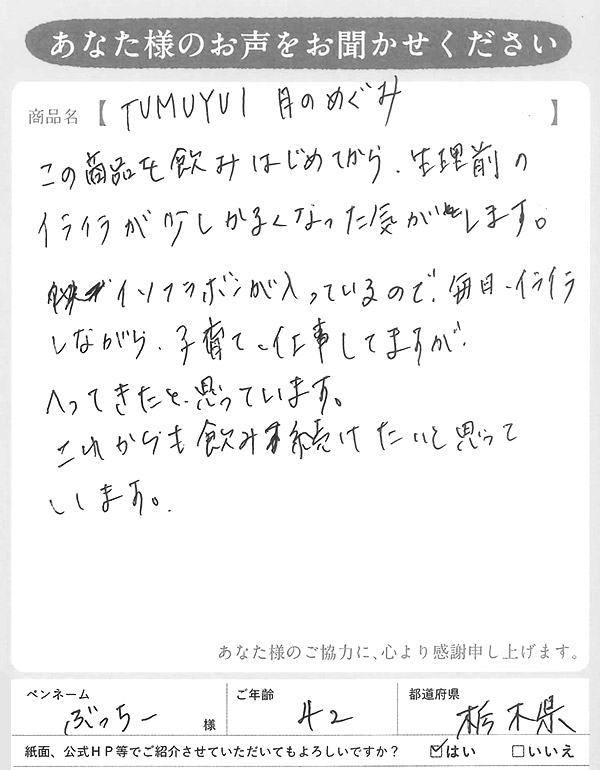 あなた様のお声をお聞かせください
商品名【 TUMUYUI 月のめぐみ 】
この商品を飲みはじめてから、生理前の
イライラが少しかるくなった気がします。
イソフラボンが入っているので、毎日、イライラ
しながら、子育て、仕事してますが、
へってきたと、思っています。
これからも飲み続けたいと思って
います。
あなた様のご協力に、心より感謝申し上げます。
ペンネーム ご年齢 都道府県
ぶっちー 様 42 栃木県
紙面、公式HP等でご紹介させていただいてもよろしいですか？ ☑はい □いいえ